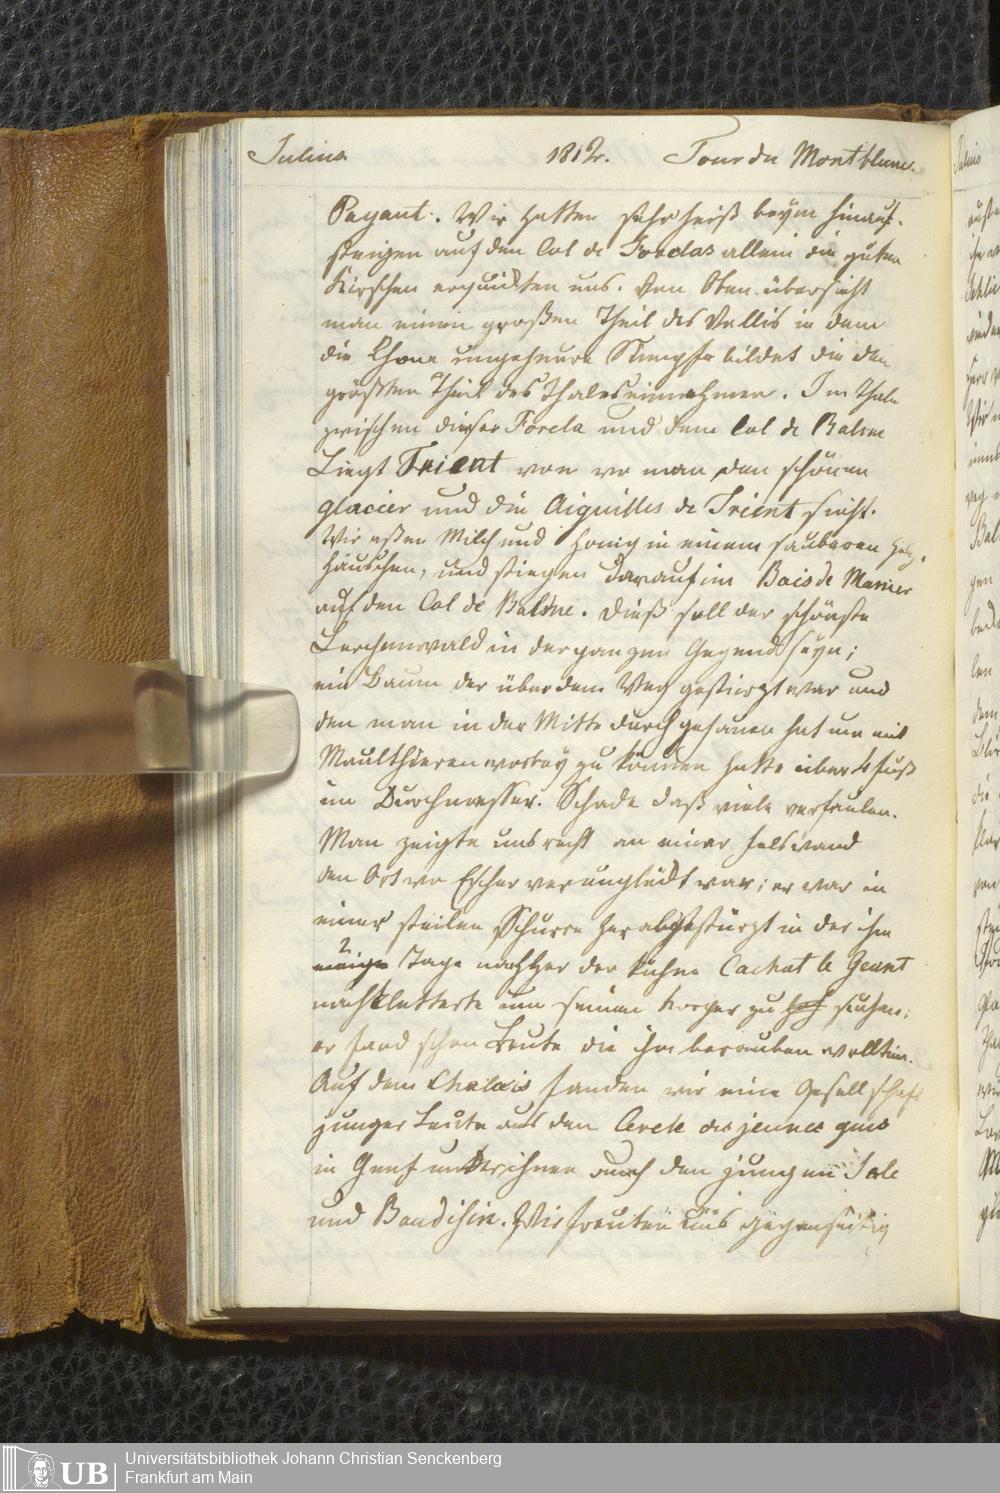 Julius 1812. Tour du Montblanc.
Payant. Wir hatten sehr heiß beym hinauf-
steigen auf den Col de Forclas allein die guten
Kirschen erquickten uns. Von Oben übersieht
man einen großen Theil des Vallis in dem
die Rhone ungeheure Sümpfe bildet die den
größten Theil des Thales einnehmen. Im Thale
zwischen dieser Forcla und dem Col de Balme
Liegt Trient von wo man den schönen
glacier und die Aiguilles de Trient sieht.
Wir aßen Milch und Honig in einem sauberen Holz-
häuschen, und stiegen darauf im Bois de Manier
auf den Col de Balme. Dieß soll der schönste
Lerchenwald in der ganzen Gegend seyn;
ein Baum der über dem Weg gestürzt war und
den man in der Mitte durch gehauen hat um mit
Maulthieren vorbey zu können hatte über 4 fuß
im Durchmesser. Schade daß viele verfaulen.
Man zeigte uns rechts an einer Felswand
den Ort wo Escher verunglückt war; er war in
einer steilen Schurre herabgestürzt in der ihm
2
einige Tage nachher der kühne Cachat le Geant
nachkletterte um seinen Körper zu suchen;
er fand schon Leute die ihn berauben wollten.
Auf dem Chalais fanden wir eine Gesellschaft
junger Leute aus den Cercle des jeunes gens
in Genf unter ihnen auch den jungen
und Baudisin. Wir freuten uns gegenseitig
UB
Universitätsbibliothek Johann Christian Senckenberg
Frankfurt am Main